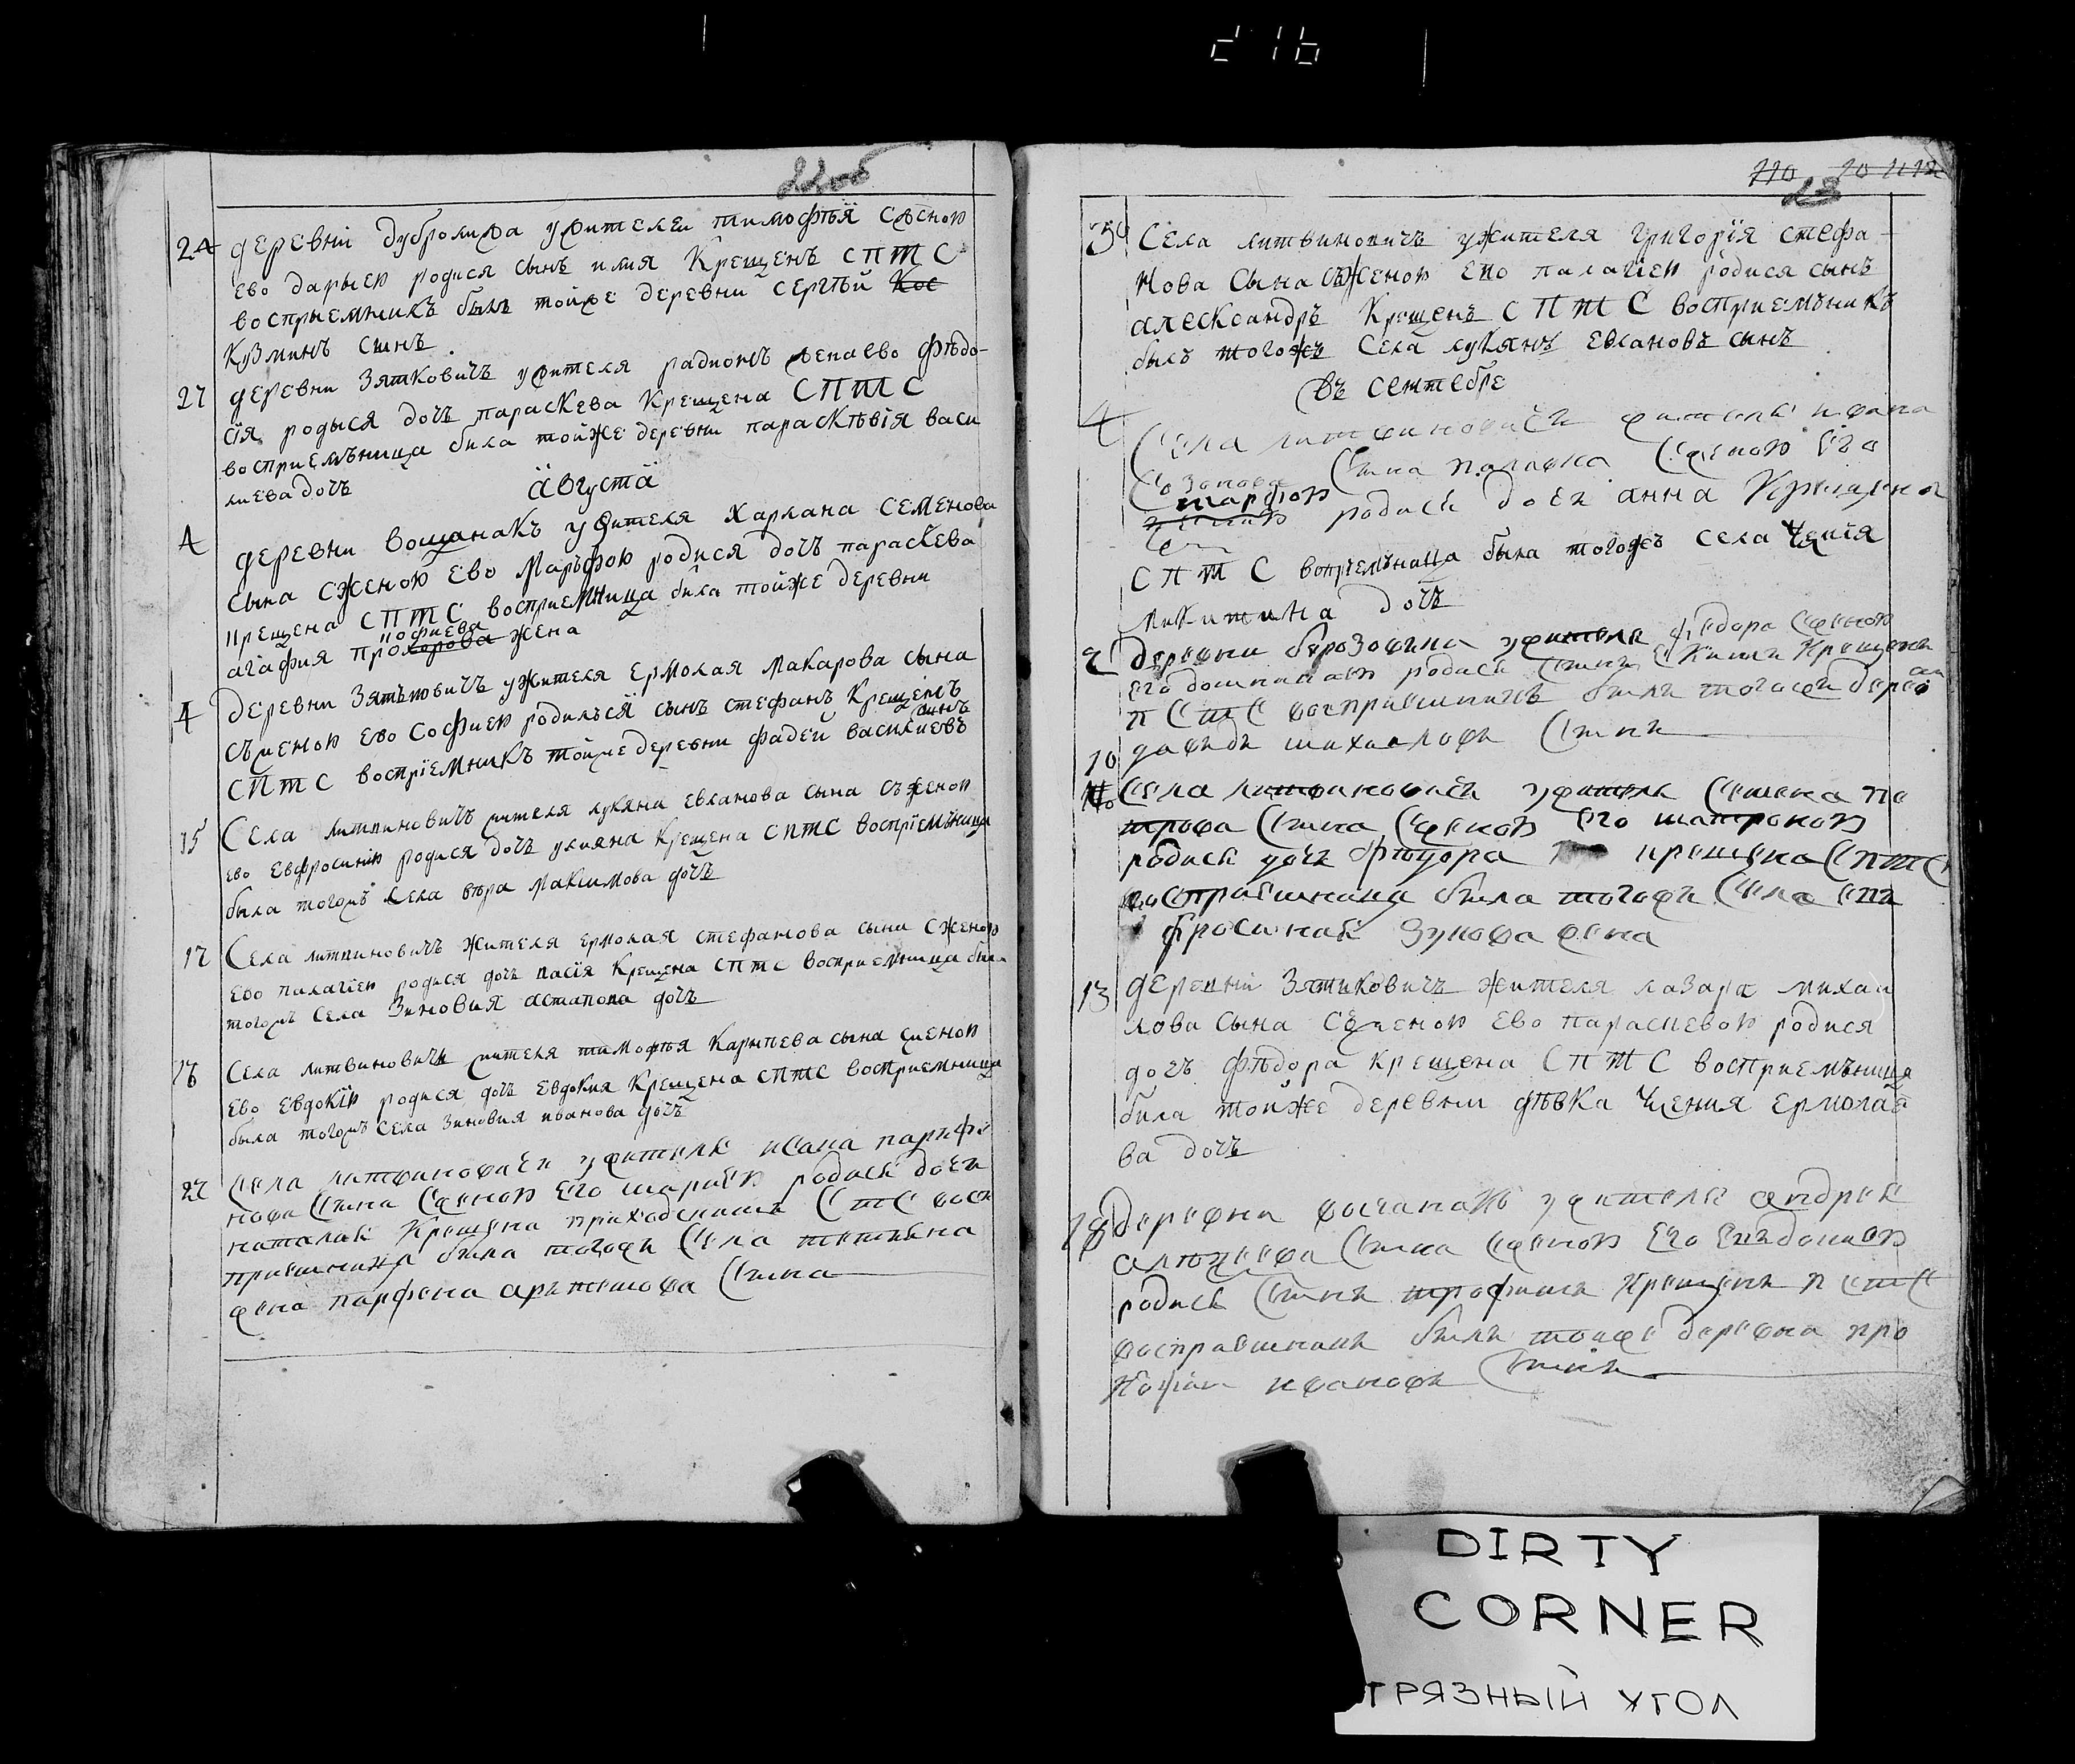 22об
24 деревни дубролива ужителея тимофѣя сженою
ево дарьею родися сынъ илия Крещенъ СПТС
воспрыемникъ былъ тойже деревни сергѣй Кос
Кузминъ сынъ
27 деревни Зятковичъ ужителя радионъ женаево фѣдо-
сїя родыся дочъ параскева Крещена СПТС
восприемъница била тойже деревни параскѣвїя васи
лиева дочъ
Августа
4 деревни вощанакъ ужителя Харлана Семенова
сына сженою Ево Маръфою родися дочъ параскева
крещена СПТС восприемница била тойже деревни
агафия прохорова жена
4 деревни Зятьковичъ ужителя Ермолая Макарова сына
съженою ево Софиею родилъся сынъ стефанъ Крещенъ
СПТС воспрїемникъ тойже деревни фадей василиевъ сынъ
15 Села литвиновичъ жителя лукяна евланова сына съженою
ево Евфросинїю родися дочъ улияна Крещена СПТС воспрїемъница
была тогожъ Села вѣра Максимова дочъ
17 Села литвиновичъ жителя ермолая стефанова сына сженою
ево палагїею родися дочъ васїя Крещена СПТС восприемница была
тогожъ Села Зиновия астапова дочъ
18 Села литвиновичъ жителя тимофѣя Карыпева сына женою
ево Евдокїю родися дочъ Евдокия Крещена СПТС восприемница
была тогожъ Села Зиновия иванова дочъ
22 села литвиновичъ ужителя исака парфе
нова сына сженою его мариею родися дочъ
наталия Крещена приходскимъ СТС вос
приемница была тогожъ села татияна
жена парфена арътемова сына
220 20 2112
23
30 Села литвиновичъ ужителя григорїя стефа-
нова Сына Съженою ево палагїею родися сынъ
александръ Крещенъ СПТС восприемъникъ
былъ тогожъ Села лукянъ Евлановъ сынъ
въ сентебре
4 Села литвиновичъ жителя ивана
Созонова сына сженою его
марфою родися дочъ анна Крещена
СПТС вопрїемъница была тогожъ села
Микитина дочъ
2 деревни березовика ужителя федора сженою
его домникею родися сынъ Крещенъ
ПСТС восприемникъ былъ тогожъ дерев
давидъ михаиловъ сынъ
10 Села литвиновичъ ужителя Семена пе
трова сына сженою его матроною
родися дочъ фѣдора крещена СПТС
восприемница была тогожъ села евъ
фросиния Зукова жена
13 деревни Зятковичъ жителя лазара михаи
лова сына Съженою ево параскевою родися
дочъ фѣдора крещена СПТС восприемъница
била тойже деревни дѣвка Ермолае
ва дочъ
18 деревни восчанакъ ужителя андрея
сына сженою его Евъдокиею
родися сынъ трофимъ Крещенъ ПСТС
восприемникъ былъ тоиже деревни про
кофии ивановъ сынъ
DIRTY
CORNER
ГРЯЗНЫЙ УГОЛ